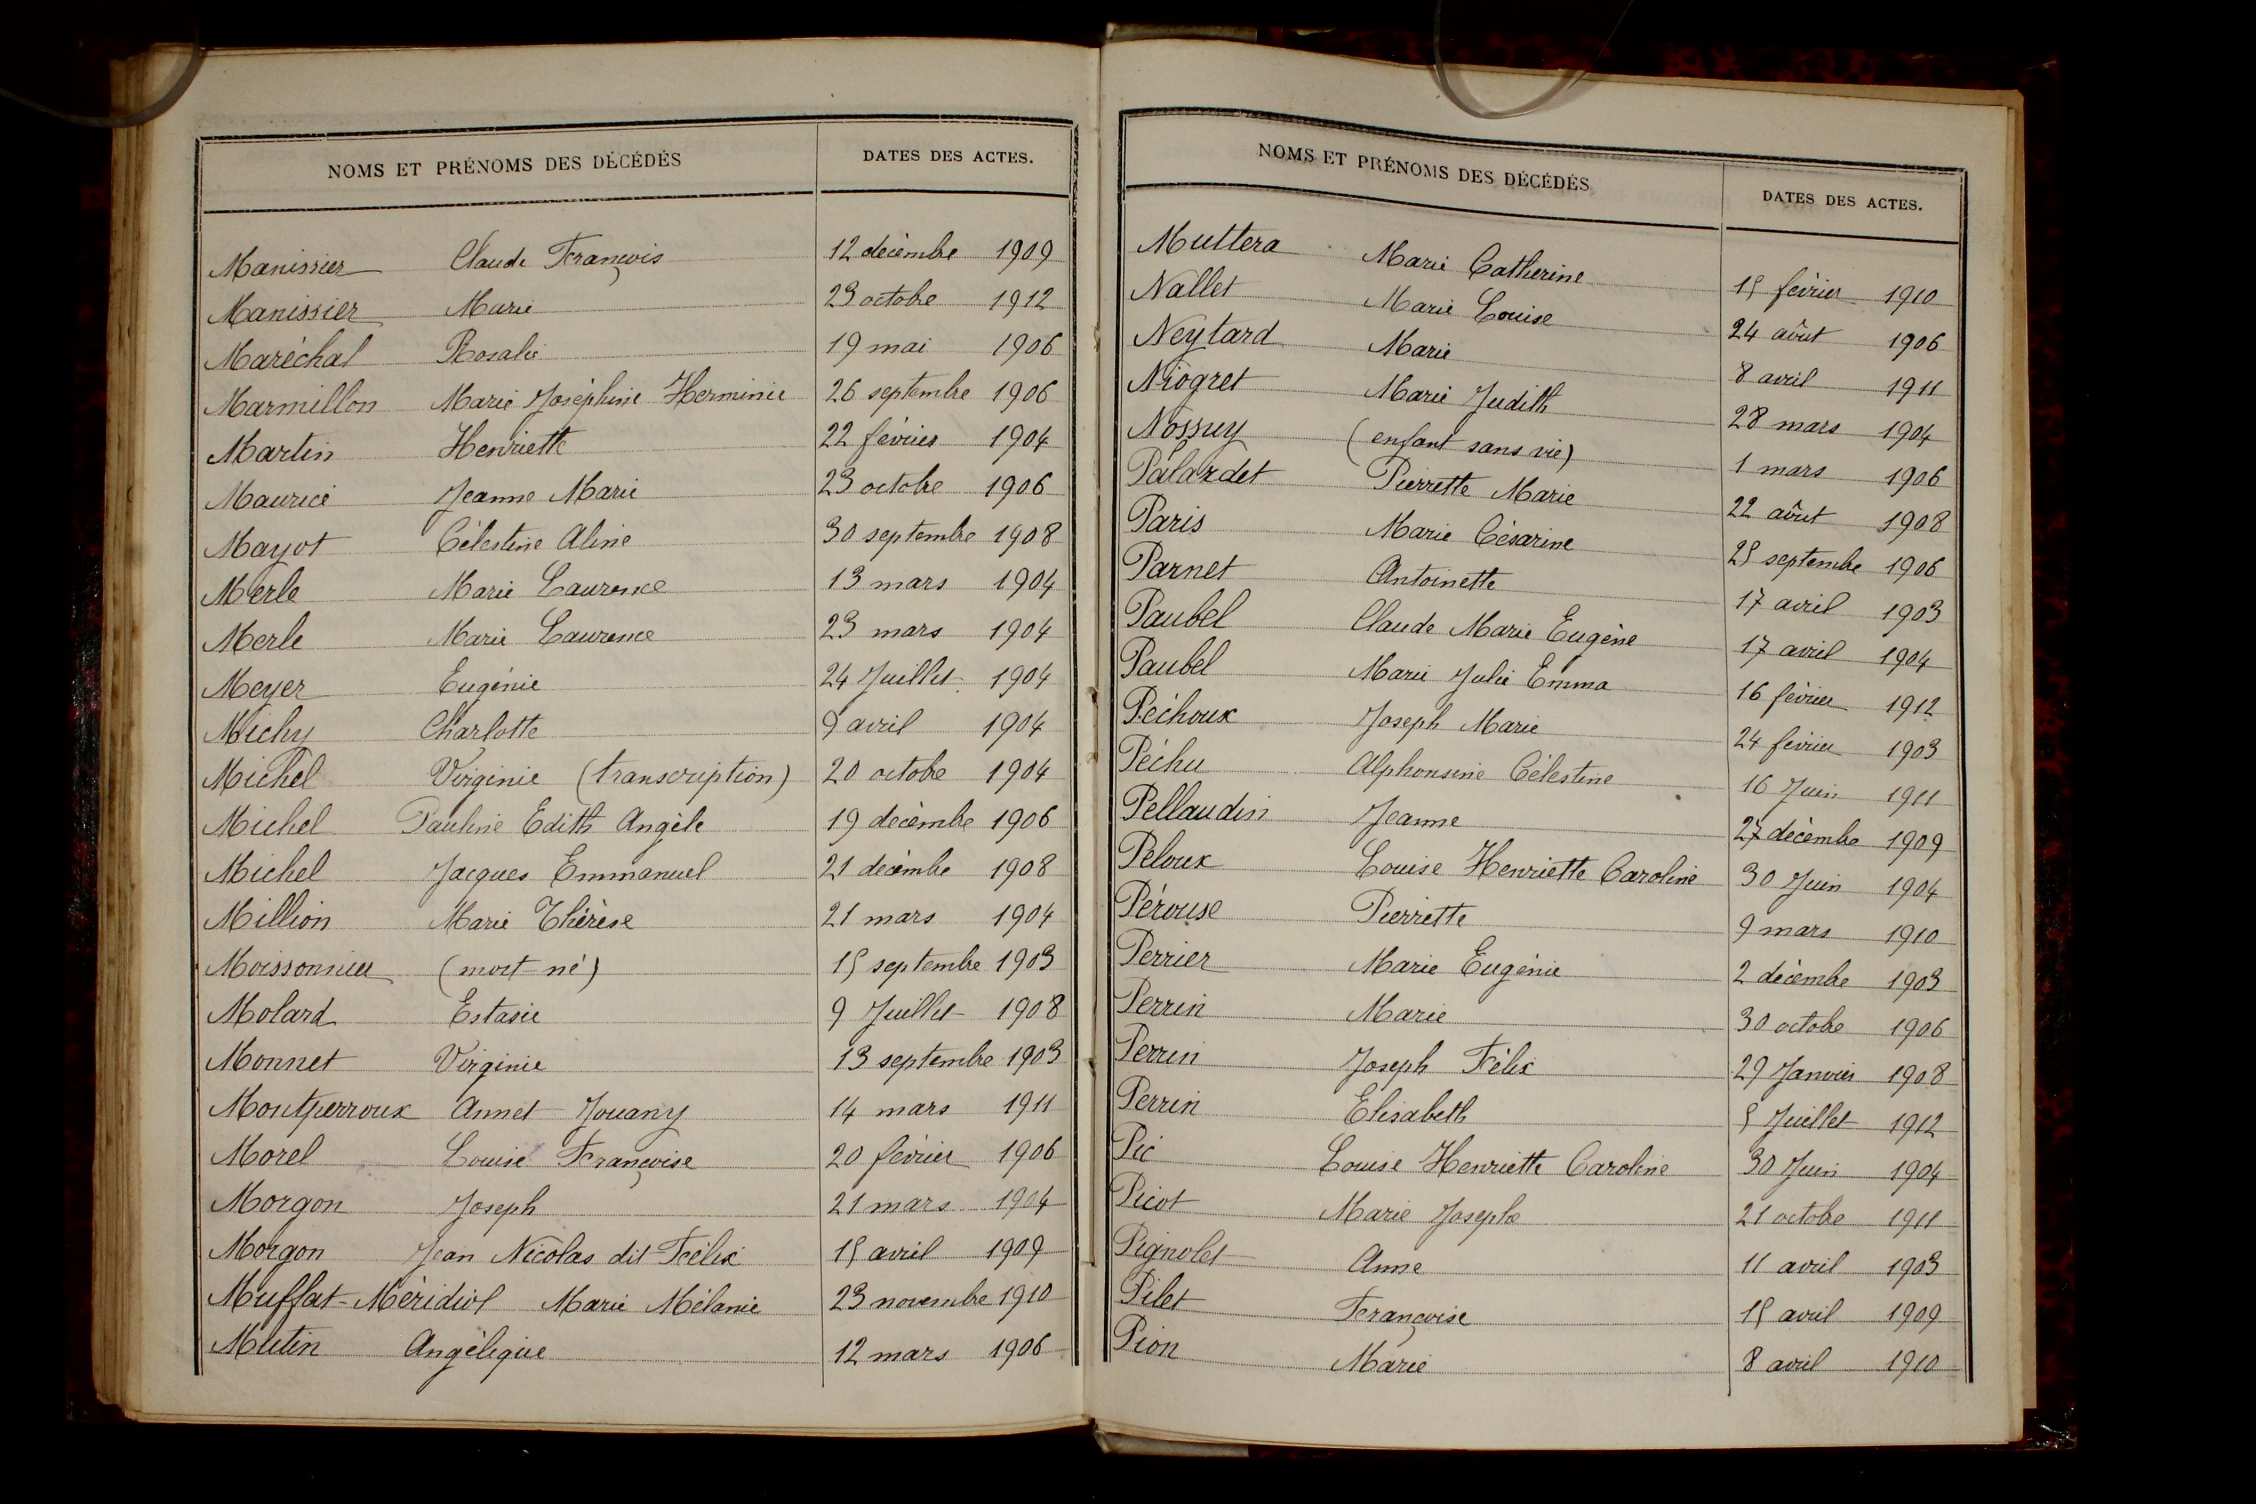 NOMS ET PRÉNOMS DES DÉCÉDÉS DATES DES ACTES.
Manissier Claude François 12 décembre 1909
Manissier Marie 23 octobre 1912
Maréchal Rosalie 19 mai 1906
Marmillon Marie Joséphine Herminie 26 septembre 1906
Martin Henriette 22 février 1904
Maurice Jeanne Marie 23 octobre 1906
Mayot Célestine Aline 30 septembre 1908
Merle Marie Laurence 13 mars 1904
Merle Marie Laurence 23 mars 1904
Meyer Eugénie 24 Juillet 1904
Michy Charlotte 9 avril 1904
Michel Virginie (transcription) 20 octobre 1904
Michel Pauline Edith Angèle 19 décembre 1906
Michel Jacques Emmanuel 21 décembre 1908
Million Marie Thérèse 21 mars 1904
Moissonnier (mort-né) 15 septembre 1903
Molard Estasie 9 Juillet 1908
Monnet Virginie 13 septembre 1903
Montperroux Annet Jouany 14 mars 1911
Morel Louise Françoise 20 février 1906
Morgon Joseph 21 mars 1904
Morgon Jean Nicolas dit Félix 15 avril 1909
Muffat-Méridiol Marie Mélanie 23 novembre 1910
Mutin Angélique 12 mars 1906
NOMS ET PRÉNOMS DES DÉCÉDÉS DATES DES ACTES.
Muttera Marie Catherine 15 février 1910
Nallet Marie Louise 24 aôut 1906
Neytard Marie 8 avril 1911
Niogret Marie Judith 28 mars 1904
Nossuy (enfant sans vie) 1 mars 1906
Palazdet Pierrette Marie 22 aôut 1908
Paris Marie Césarine 25 septembre 1906
Parnet Antoinette 17 avril 1903
Paubel Claude Marie Eugène 17 avril 1904
Paubel Marie Julie Emma 16 février 1912
Péchoux Joseph Marie 24 février 1903
Péchu Alphonsine Célestine 16 Juin 1911
Pellaudin Jeanne 27 décembre 1909
Peloux Louise Henriette Caroline 30 Juin 1904
Pérouse Pierrette 9 mars 1910
Perrier Marie Eugénie 2 décembre 1903
Perrin Marie 30 octobre 1906
Perrin Joseph Félix 29 Janvier 1908
Perrin Elisabeth 5 Juillet 1912
Pic Louise Henriette Caroline 30 Juin 1904
Picot Marie Josephe 21 octobre 1911
Pignolet Anne 11 avril 1903
Pilet Françoise 15 avril 1909
Pion Marie 8 avril 1910